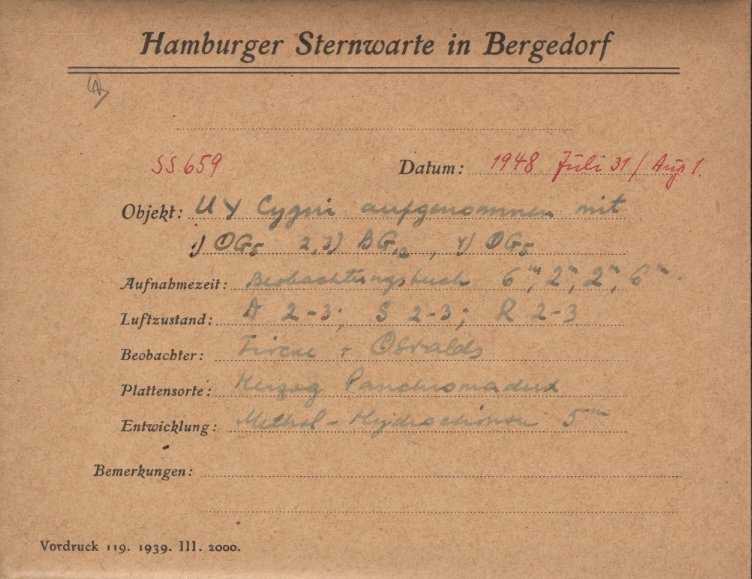 Hamburger Sternwarte in Bergedorf
SS 659 Datum: 1948 Juli 31 / Aug 1.
Objekt: UY Cygni aufgenommen mit
1) OG5 2,3) BG12, 4) OG5
Aufnahmezeit: Beobachtungsbuch 6m, 2m, 2m, 6m
Luftzustand: A 2-3; S 2-3; R 2-3
Beobachter: + Osvalds
Plattensorte: Herzog Panchromadux
Entwicklung: Methol-Hydrochinon 5m
Bemerkungen:
Vordruck 119. 1939. III. 2000.